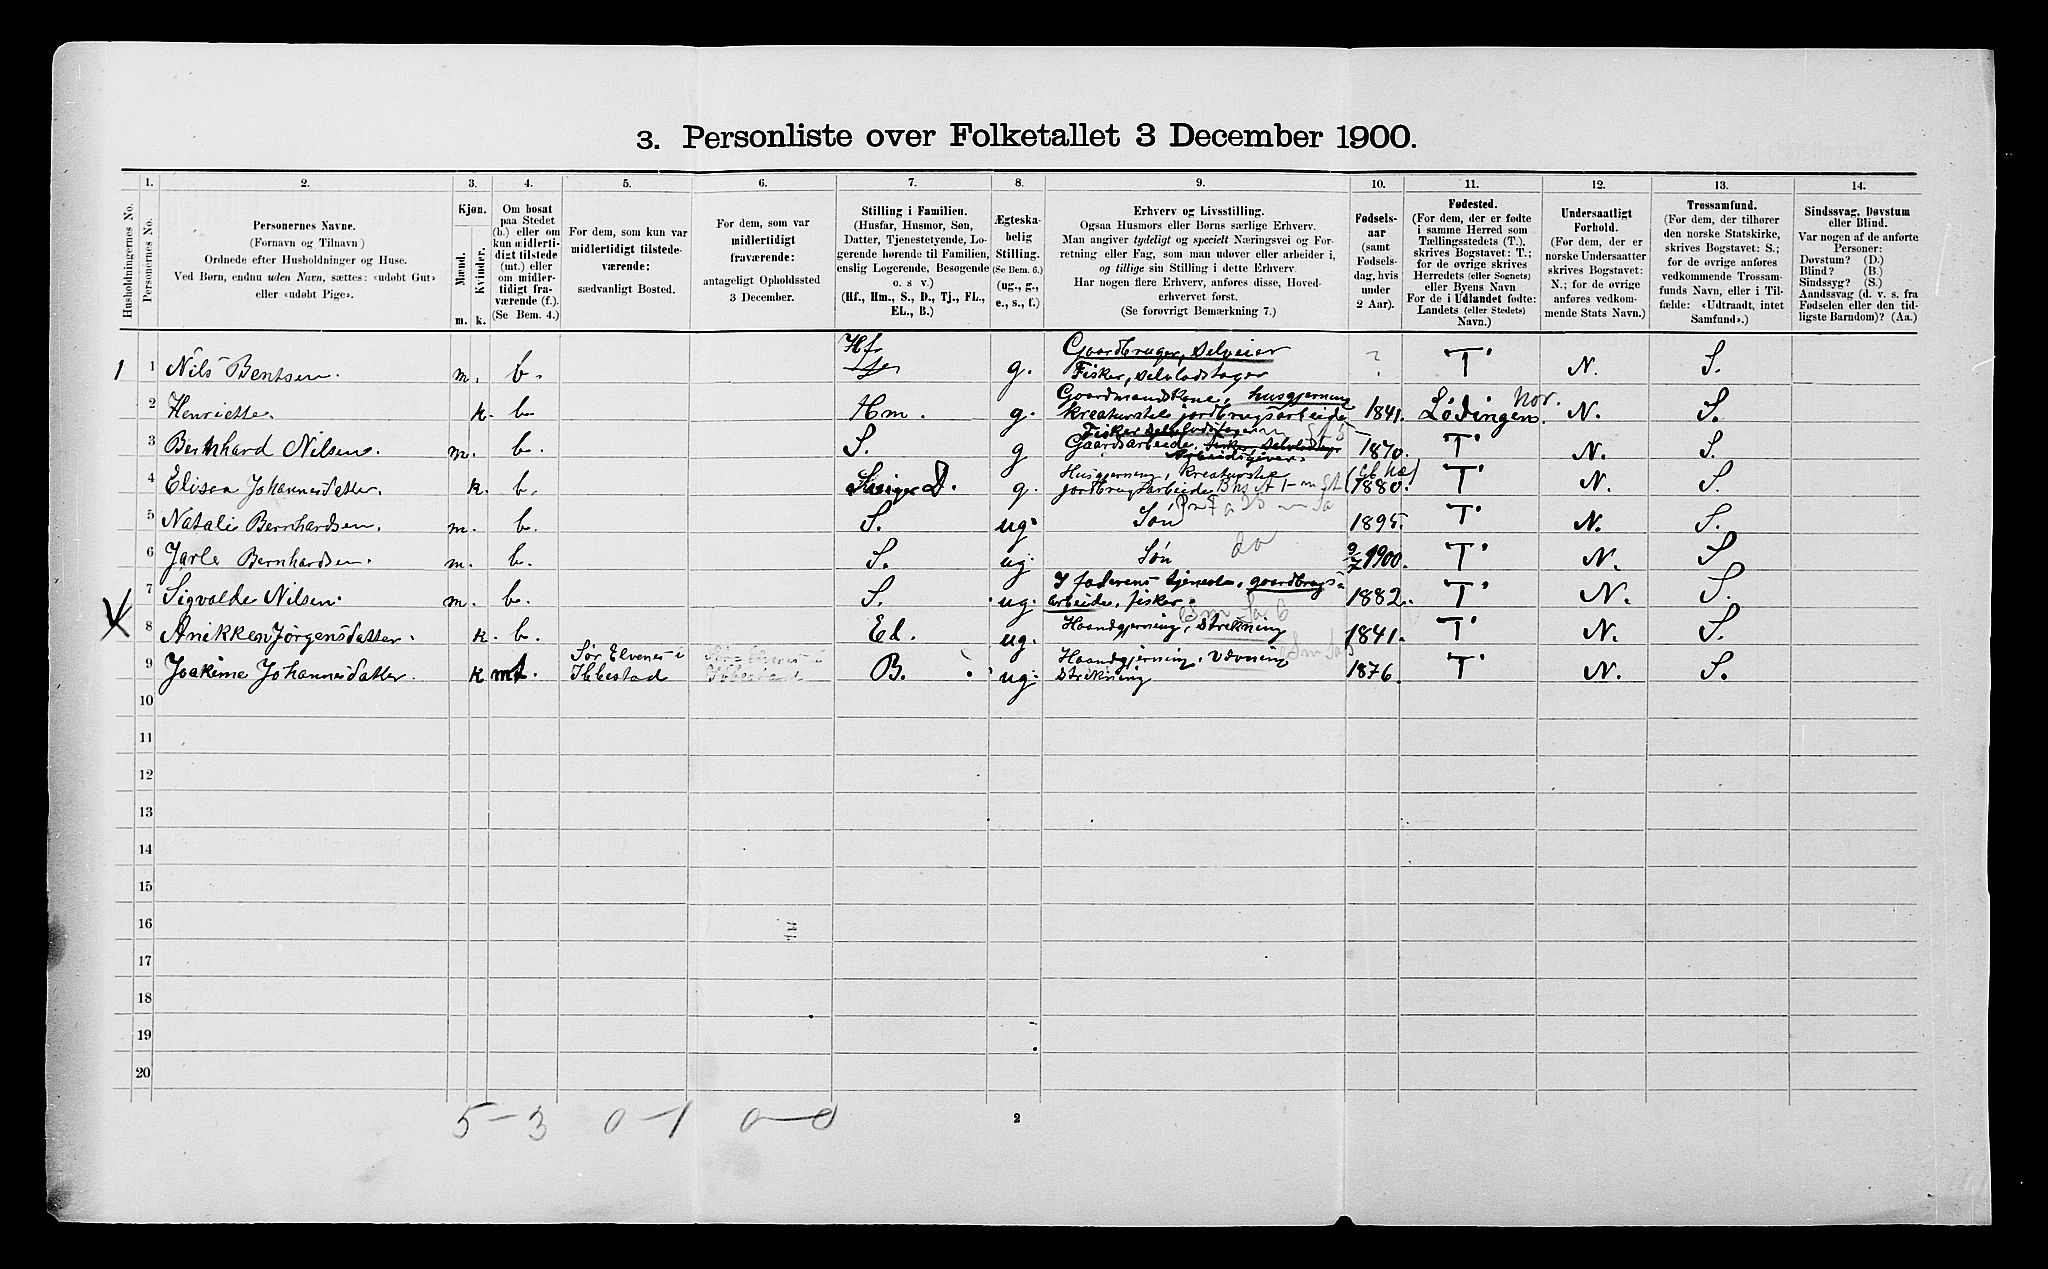 3. Personliste over Folketallet 3 December 1900.
1. 2. 3. 4. 5. 6. 7. 8. 9. 10. 11. 12. 13. 14.
Husholdningernes No.
Personernes No.
Personernes Navne.
(Fornavn og Tilnavn)
Ordnede efter Husholdninger og Huse.
Ved Børn, endnu uden Navn, sættes: «udøbt Gut»
eller «udøbt Pige».
Kjøn.
Mænd.
Kvinder.
m. k.
Om bosat
paa Stedet
(b.) eller om
kun midlerti-
digt tilstede
(mt.) eller
om midler-
tidigt fra-
værende (f.).
(Se Bem. 4.)
For dem, som kun var
midlertidigt tilstede-
værende:
sædvanligt Bosted.
For dem, som var
midlertidigt
fraværende:
antageligt Opholdssted
3 December.
Stilling i Familien.
(Husfar, Husmor, Søn,
Datter, Tjenestetyende, Lo-
gerende hørende til Familien,
enslig Logerende, Besøgende
o. s v.)
(Hf., Hm., S., D., Tj., FL.,
EL., B.)
Ægteska-
belig
Stilling.
(Se Bem. 6.)
(ug., g.,
e., s., f.)
Erhverv og Livsstilling.
Ogsaa Husmors eller Børns særlige Erhverv.
Man angiver tydeligt og specielt Næringsvei og For-
retning eller Fag, som man udøver eller arbeider i,
og tillige sin Stilling i dette Erhverv.
Har nogen flere Erhverv, anføres disse, Hoved-
erhvervet først.
(Se forøvrigt Bemærkning 7.)
Fødsels-
aar
(samt
Fødsels-
dag, hvis
under
2 Aar).
Fødested.
(For dem, der er fødte
i samme Herred som
Tællingsstedets (T.),
skrives Bogstavet: T.;
for de øvrige skrives
Herredets (eller Sognets)
eller Byens Navn
For de i Udlandet fødte:
Landets (eller Stedets)
Navn.)
Undersaatligt
Forhold.
(For dem, der er
norske Undersaatter
skrives Bogstavet:
N.; for de øvrige
anføres vedkom-
mende Stats Navn.)
Trossamfund.
(For dem, der tilhører
den norske Statskirke,
skrives Bogstavet: S.;
for de øvrige anføres
vedkommende Trossam-
funds Navn, eller i Til-
fælde: «Udtraadt, intet
Samfund».)
Sindssvag, Døvstum
eller Blind.
Var nogen af de anførte
Personer:
Døvstum? (D.)
Blind? (B.)
Sindssyg? (S.)
Aandssvag (d. v. s. fra
Fødselen eller den tid-
ligste Barndom)? (Aa.)
1 1 Nils Bentsen. m. b. Hf g. Gaardbruger, selveier
Fisker, selvlodstager ? T N. S.
2 Henriette. k. b. Hm. g. Gaardmandskone, husgjerning
kreaturstel, jordbrugsarbeide 1841. Lødingen. Nor. N. S.
3 Bernhard Nilsen. m. b. S. g Fisker selvlodstager
Gaardsarbeide, fisker selvlodstager
Arbeidsgiver 1870. T N. S.
4 Elisea Johannesdatter. k. b. D. g. Husgjerning, kreaturstel
jordbrugsarbeide 1880. T N. S.
5 Natali Bernhardsen. m. b. S. ug. Søn 1895. T N. S.
6 Jarle Bernhardsen. m. b. S. ug. Søn do 9/7 1900. T N. S
7 Sigvalde Nilsen. m. b. S. ug. I faderens tjeneste, gaardbrugs-
arbeide, fisker. 1882. T N. S.
8 Anikken Jørgensdatter. k. b. El. ug. Haandgjerning, strikning 1841. T N. S.
9 Joakime Johannesdatter. k mt. Sør Elvenes i
Ibbestad Sør-Elvenes i
Ibbestad B. ug. Haandgjerning, vævning
strikning 1876. T N. S.
10
11
12
13
14
15
16
17
18
19
20
5-3 0-1 0-0
2